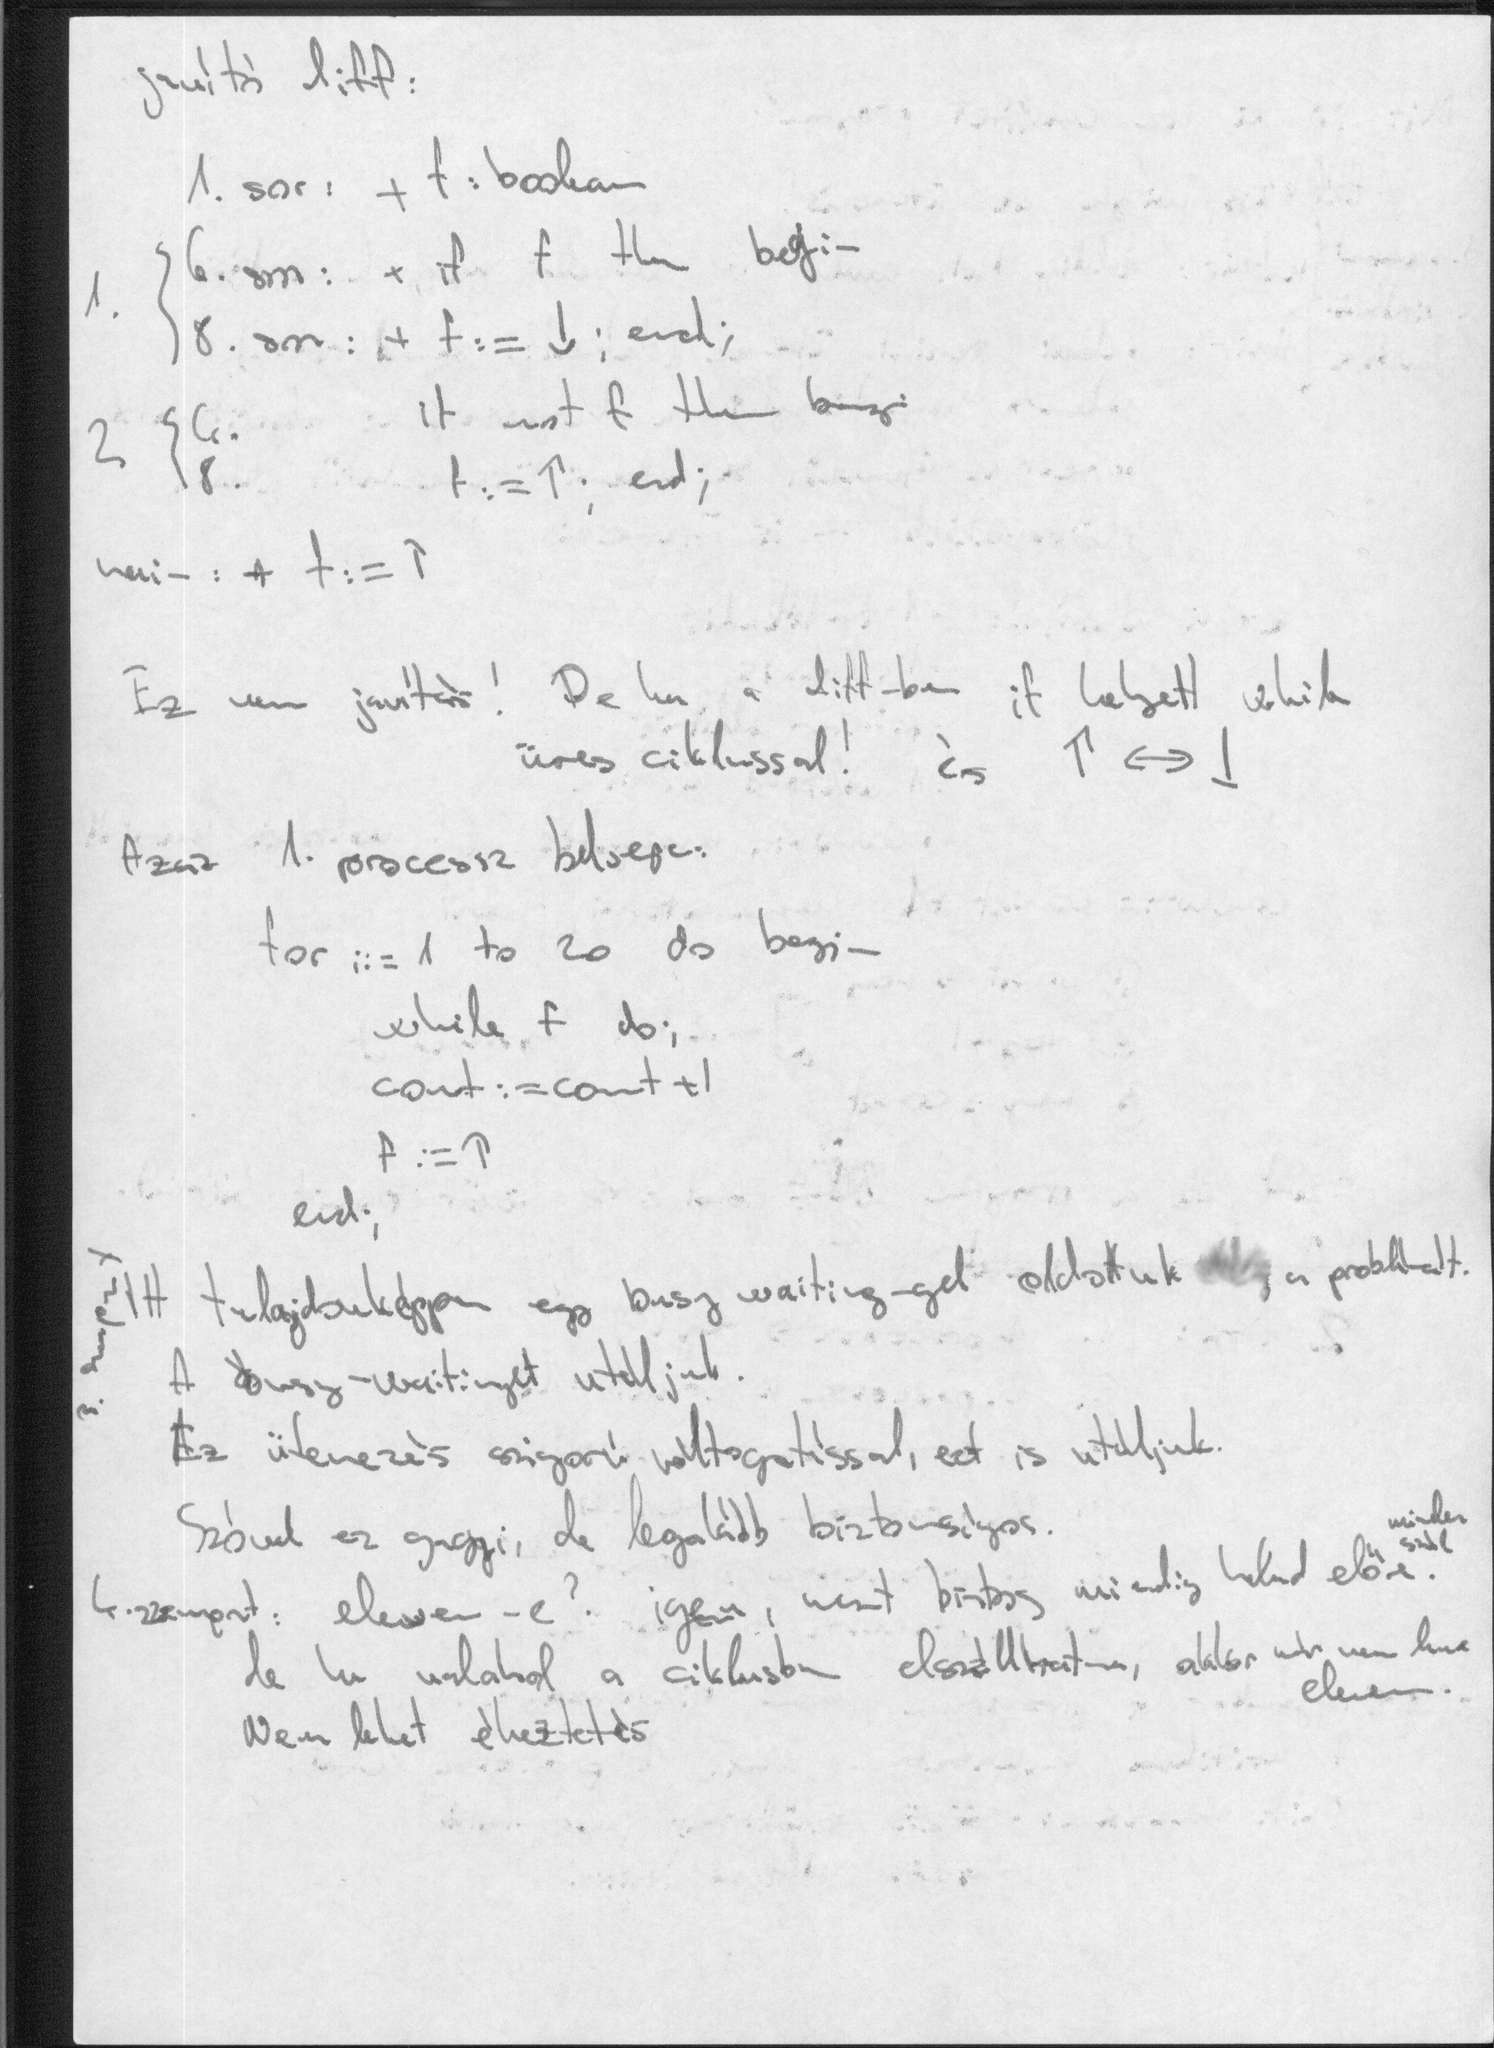 javító diff:
1. sor: + f: boolean
1. { 6. sor: + if f then begin
8. sor: + f:= ↓; end;
2 { 6. if not f then begin
8. f:=↑; end;
main: + f:=↑
Ez nem javítás! De ha a diff-ben if helyett while
üres ciklussal! és ↑ ↔ ↓
Azaz 1. processz belseje:
for i:=1 to 20 do begin
while f do;
count:=count+1
f:=↑
end;
3. szempont
Itt tulajdonképpen egy busy waiting-gel oldottuk a problémát.
A busy-waitinget utáljuk.
Ez ütemezés szigorú váltogatással, ezt is utáljuk.
Szóval ez gagyi, de legalább biztonságos.
minden szál
4. szempont: eleven-e? igen, mert biztos mindig halad előre.
de ha valahol a ciklusban elszállhatna, akkor már nem lenne
eleven.
Nem lehet éheztetés